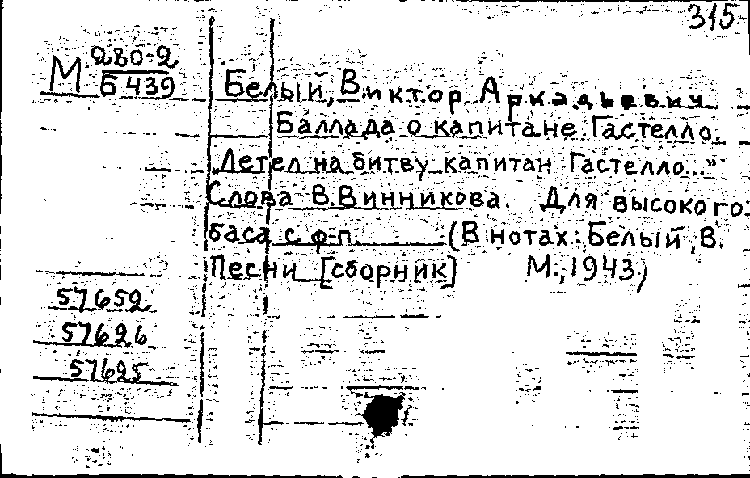 315
М 280-2
Б 439
Белый, Виктор Аркадьевич
Баллада о капитане Гастелло.
"Летел на битву капитан Гастелло..."
Слова В.Винникова. Для высокого
баса с ф-п. (В нотах: Белый, В.
Песни [сборник] М., 1943)
57652
57626
57625